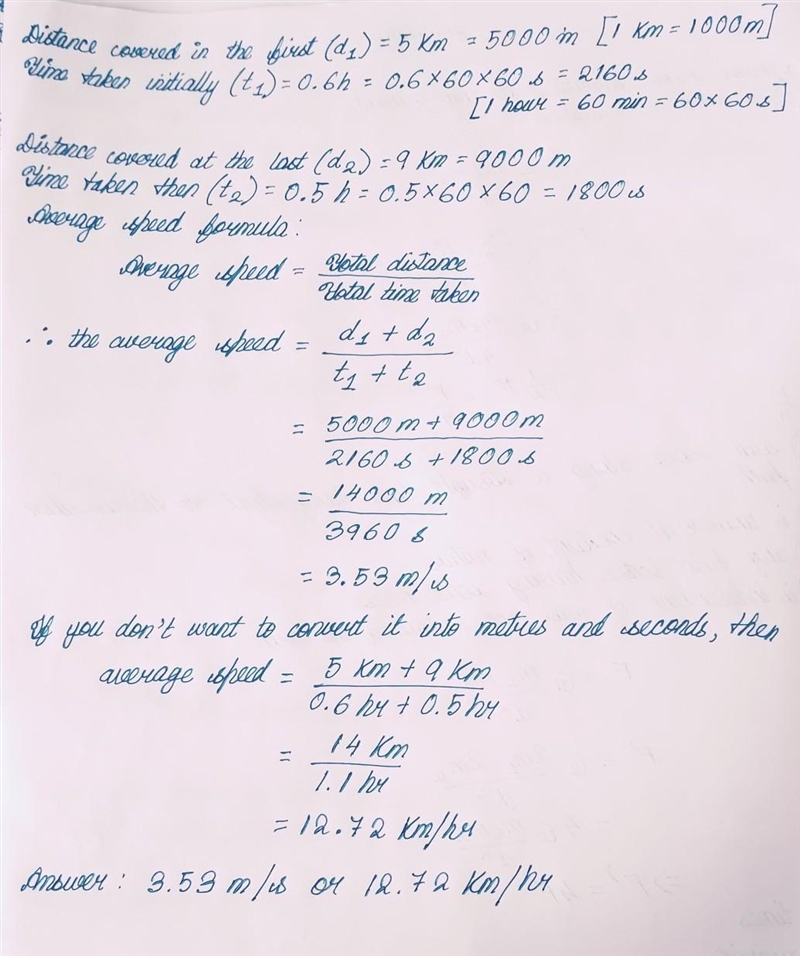 Distance covered in the first (d1) = 5 Km = 5000 m [1 Km = 1000 m]
Time taken initially (t1) = 0.6 h = 0.6 × 60 × 60 s = 2160 s
[1 hour = 60 min = 60 × 60 s]
Distance covered at the last (d2) = 9 Km = 9000 m
Time taken then (t2) = 0.5 h = 0.5 × 60 × 60 = 1800 s
Average speed formula:
Average speed = Total distance
Total time taken
∴ the average speed = d1 + d2
t1 + t2
= 5000 m + 9000 m
2160 s + 1800 s
= 14000 m
3960 s
= 3.53 m/s
If you don't want to convert it into metres and seconds, then
average speed = 5 Km + 9 Km
0.6 hr + 0.5 hr
= 14 Km
1.1 hr
= 12.72 Km/hr
Answer : 3.53 m/s or 12.72 Km/hr